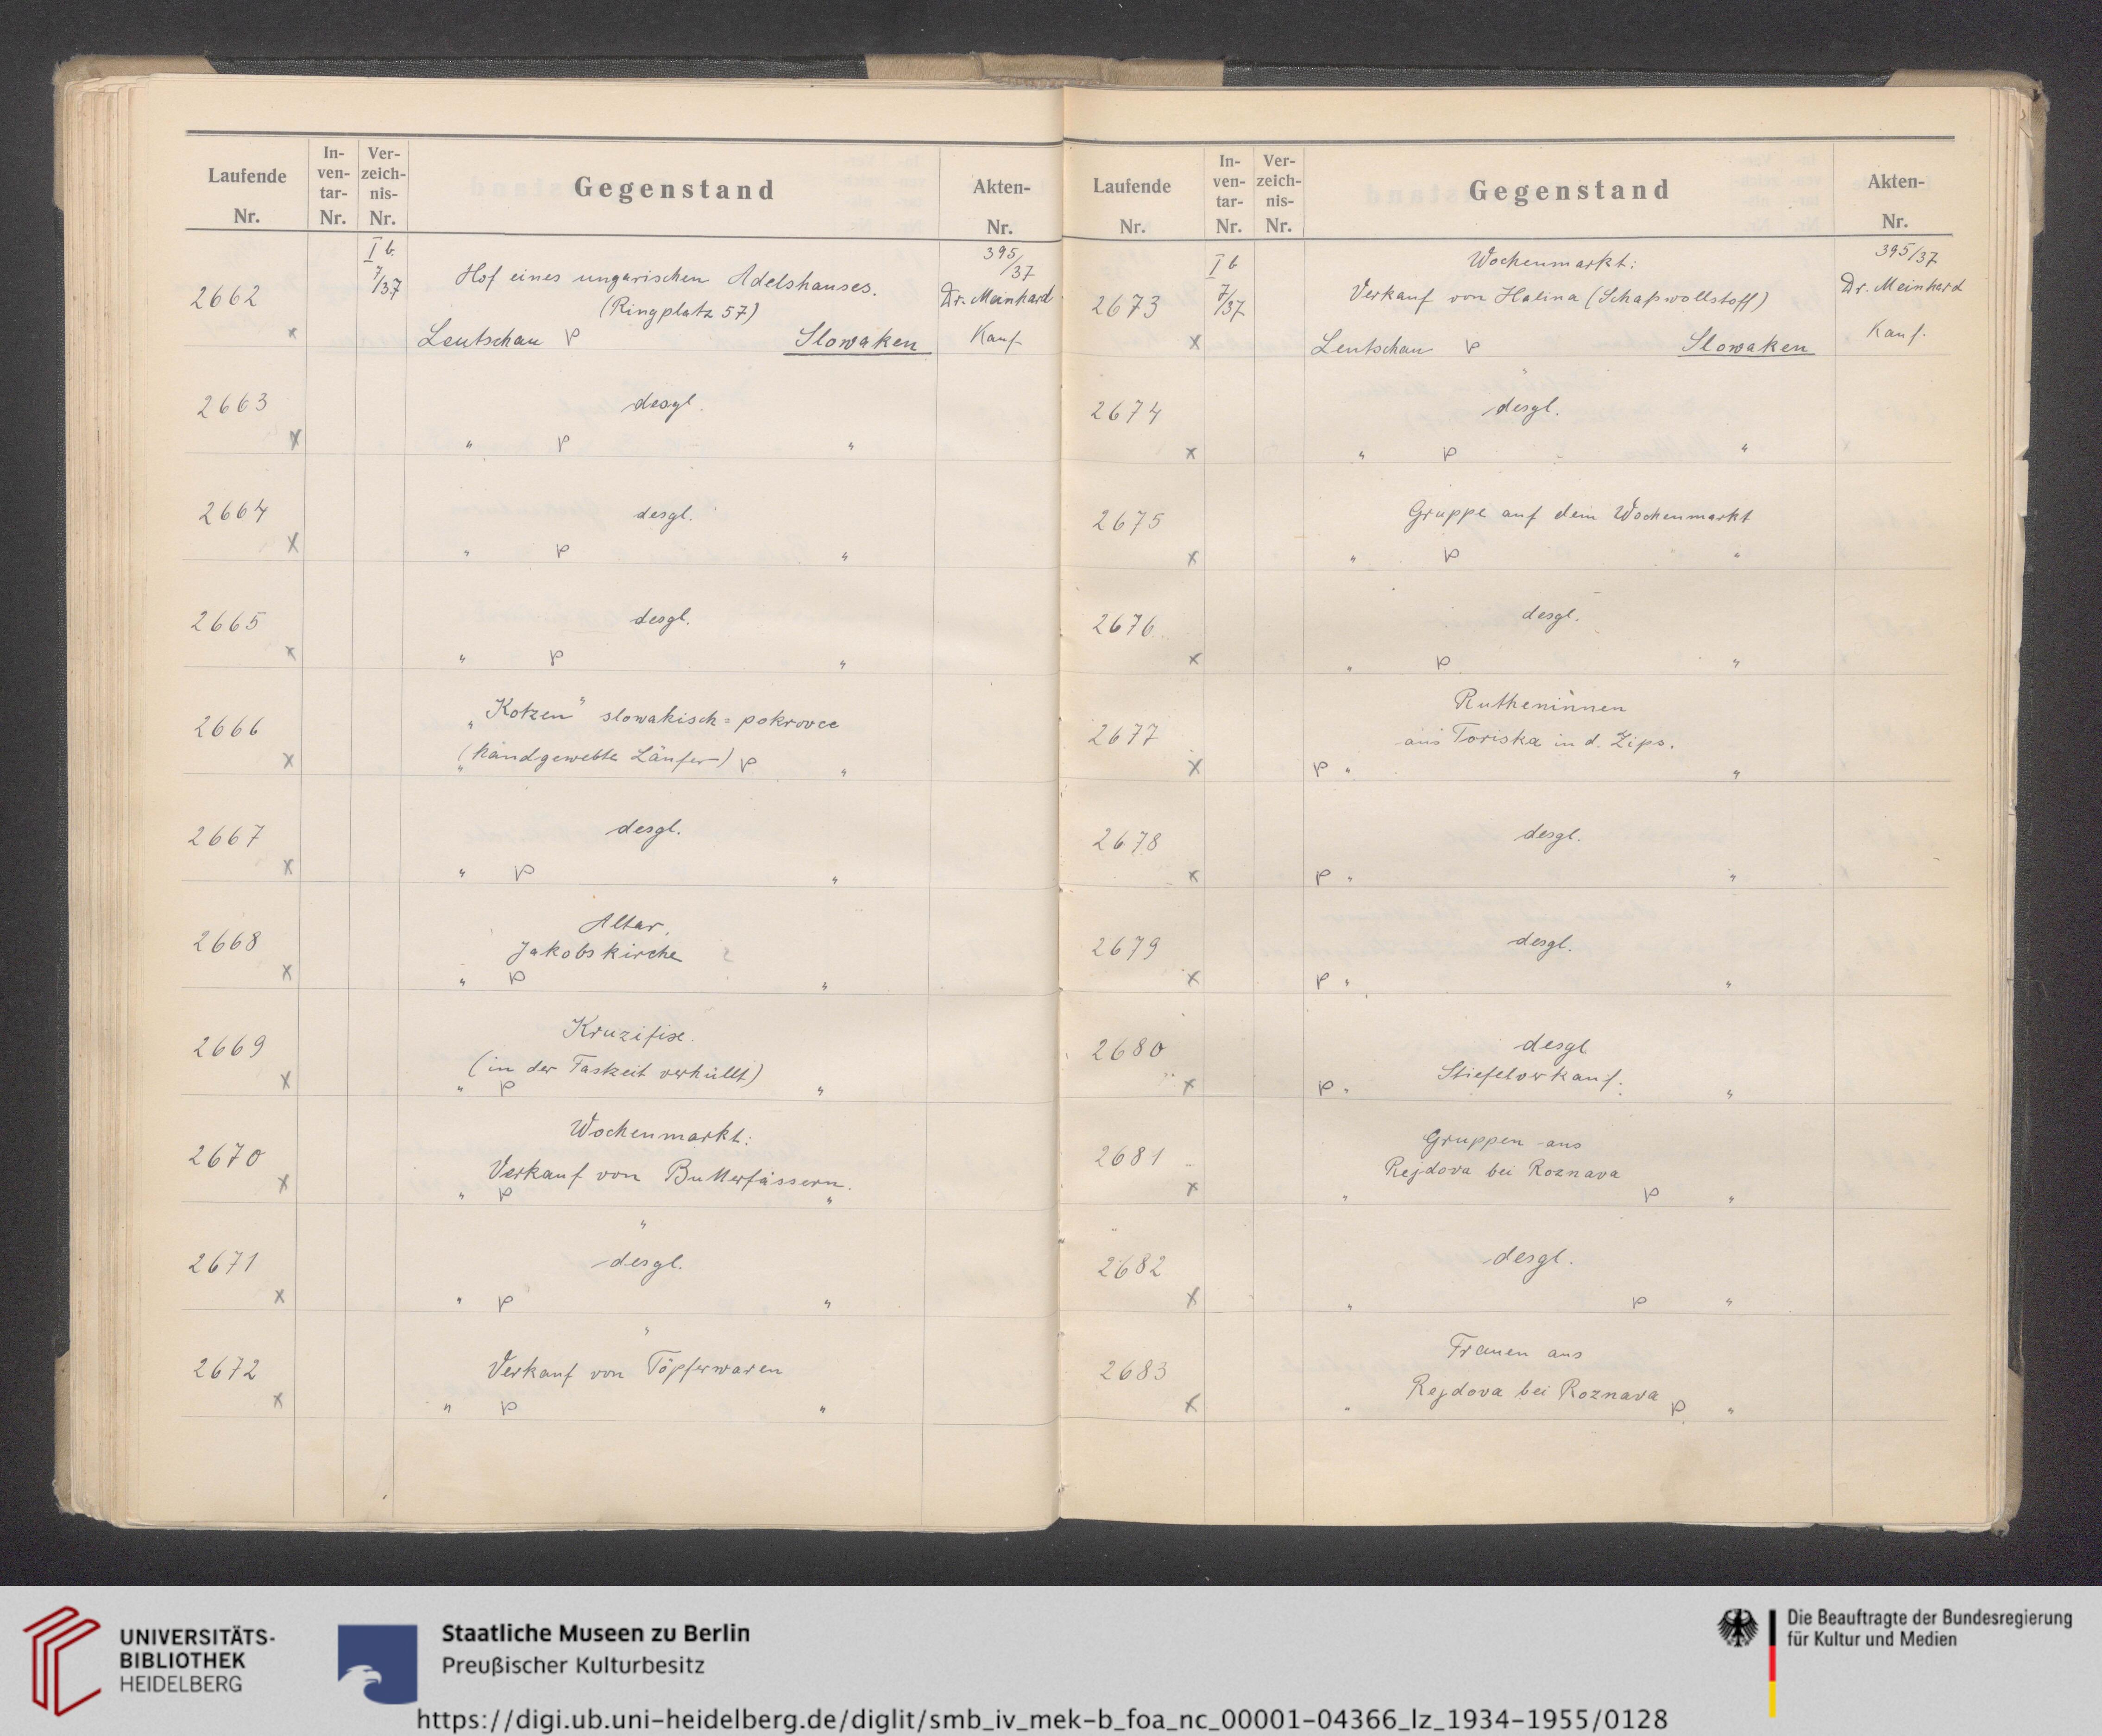 Laufende Nr.
In-ven-tar-Nr.
Ver-zeich-nis-Nr.
Gegenstand
Akten-Nr.
I b. 7/37
395/37
2662
Hof eines ungarischen Adelshauses.
(Ringplatz 57)
Dr. Meinhard
x
Leutschau P Slowaken
Kauf
2663
desgl.
x " P "
2664
desgl.
x " P "
2665
desgl.
x " P "
2666
„Kotzen" slowakisch = pokrovce
x (handgewebte Läufer) P "
"
2667
desgl.
x " P "
2668
Altar,
Jakobskirche
x " P "
2669
Kruzifixe.
(in der Fastzeit verhüllt)
x " P "
2670
Wochenmarkt:
Verkauf von Butterfässern.
x " P "
"
2671
desgl.
x " P "
"
2672
Verkauf von Töpferwaren
x " P "
Laufende Nr.
In-ven-tar-Nr.
Ver-zeich-nis-Nr.
Gegenstand
Akten-Nr.
I b 7/37
Wochenmarkt:
395/37
2673
Verkauf von Halina (Schafwollstoff)
Dr. Meinhard
x
Leutschau P Slowaken
Kauf.
"
2674
desgl.
x " P "
2675
Gruppe auf dem Wochenmarkt
x " P "
2676
desgl.
x " P "
2677
Rutheninnen
aus Toriska in d. Zips.
x P " "
2678
desgl.
x P " "
2679
desgl.
x P " "
2680
desgl
Stiefelverkauf.
x P " "
2681
Gruppen aus
Rejdova bei Roznava
x " P "
2682
desgl.
x " P "
2683
Frauen aus
Rejdova bei Roznava
x " P "
UNIVERSITÄTS-
BIBLIOTHEK
HEIDELBERG
Staatliche Museen zu Berlin
Preußischer Kulturbesitz
Die Beauftragte der Bundesregierung
für Kultur und Medien
https://digi.ub.uni-heidelberg.de/diglit/smb_iv_mek-b_foa_nc_00001-04366_lz_1934-1955/0128